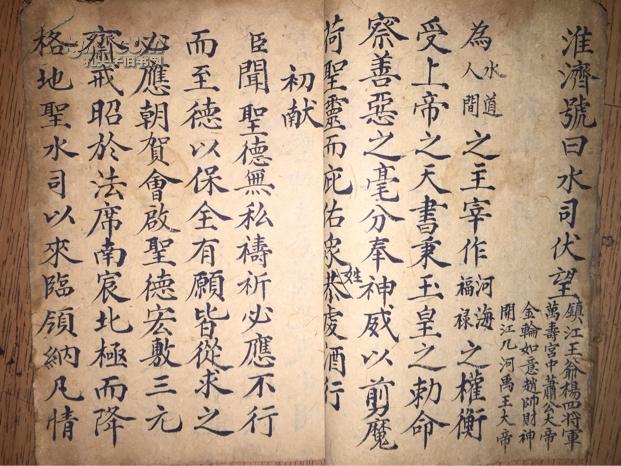 淮濟號曰水司伏望
鎮江王爺楊四將軍
萬壽宮中蕭公大帝
金輪如意趙帥財神
開江九河萬王大帝
為水道人間之主宰作河海福祿之權衡
受上帝之天書秉玉皇之勅命
察善惡之毫分奉神威以剪魔
荷聖靈而庇佑眾姓恭虔酒行
初献
臣聞聖德無私禱祈必應不行
而至德以保全有願皆從求之
必應朝賀會啟聖德宏敷三元
齋戒昭於法席南宸北極而降
格地聖水司以來臨領納凡情